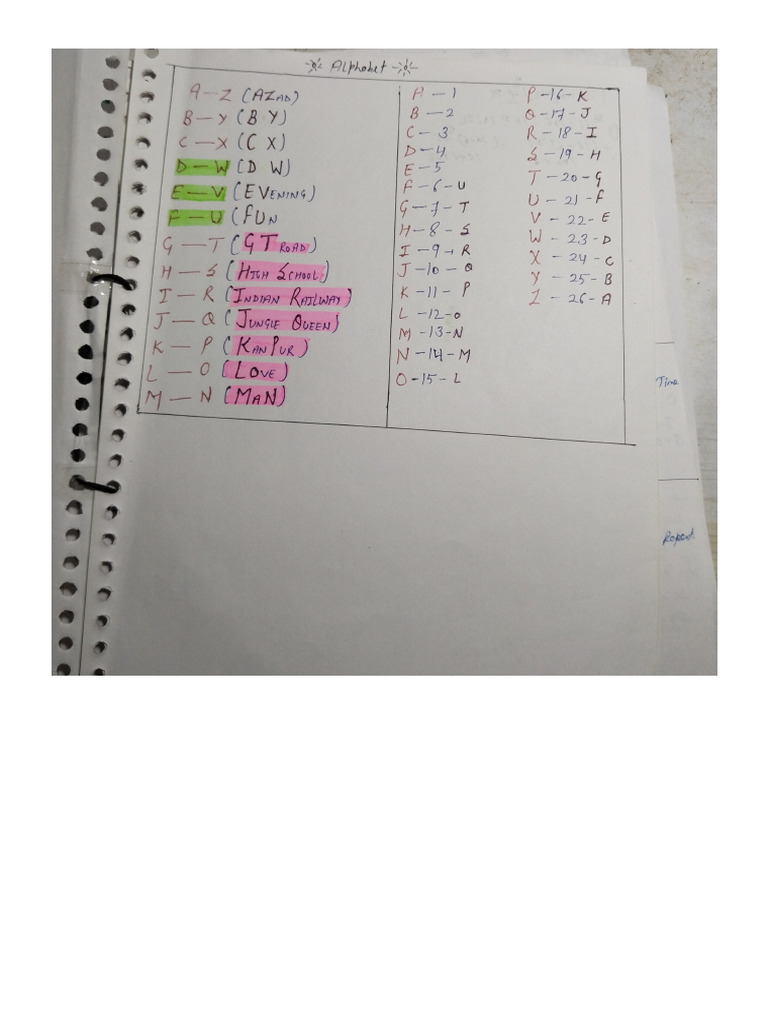 Alphabet
A — Z (AZAD)
B — Y (B Y)
C — X (C X)
D — W (D W)
E — V (EVENING)
F — U (FUN
G — T (GT ROAD)
H — S (HIGH SCHOOL)
I — R (INDIAN RAILWAY)
J — Q (JUNGLE QUEEN)
K — P (KANPUR)
L — O (LOVE)
M — N (MAN)
A — 1
B — 2
C — 3
D — 4
E — 5
F - 6 - U
G - 7 - T
H - 8 - S
I - 9 - R
J - 10 - Q
K - 11 - P
L - 12 - O
M - 13 - N
N - 14 - M
O - 15 - L
P - 16 - K
Q - 17 - J
R - 18 - I
S - 19 - H
T - 20 - G
U - 21 - F
V - 22 - E
W - 23 - D
X - 24 - C
Y - 25 - B
Z - 26 - A
Time